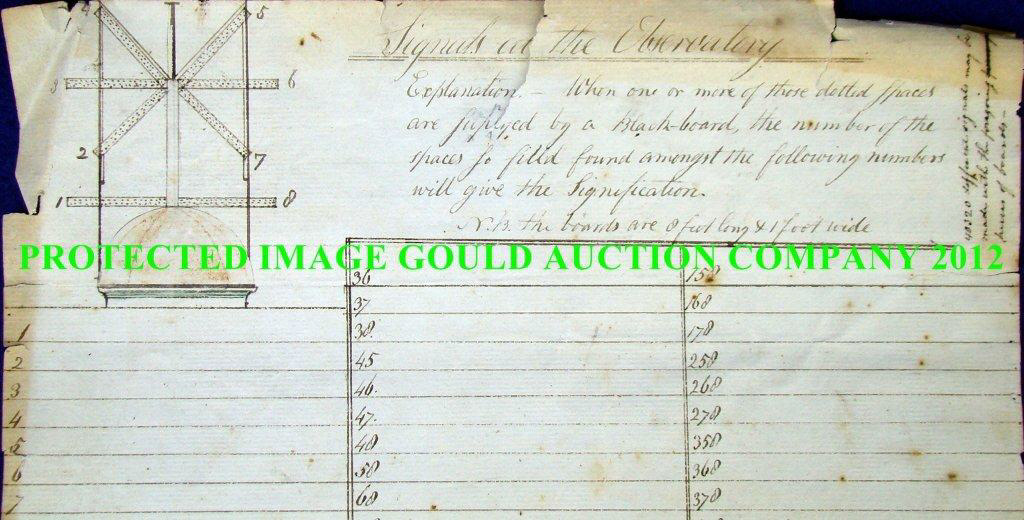 4 5
3 6
2 7
1 8
Signals at the Observatory
Explanation. – When one or more of those dotted Spaces
are supplyed by a Black-board, the number of the
spaces so filld found amongst the following numbers
will give the Signification.
N.B. the boards are 8 feet long & 1 foot wide
40320 different signals may be
made with the foregoing
pieces of boards –
PROTECTED IMAGE GOULD AUCTION COMPANY 2012
36 158
37 168
1 38. 178
2 45 258
3 46. 268
4 47. 278
5 48 358
6 58 368
7 68 378